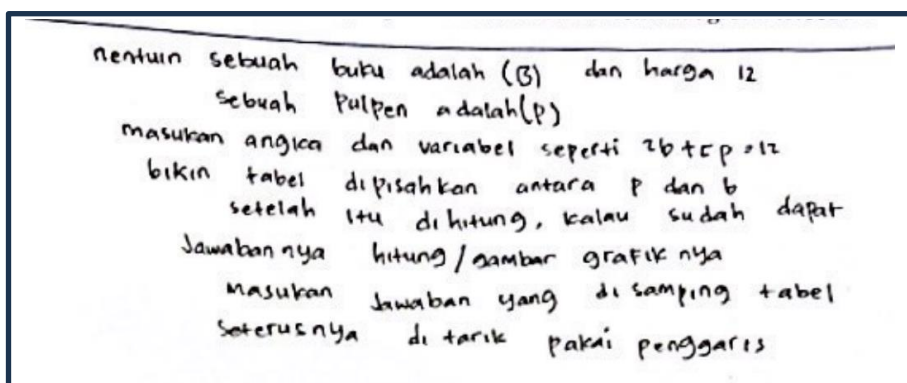 nentuin sebuah buku adalah (B) dan harga 12
sebuah Pulpen adalah (P)
masukan angka dan variabel seperti 2b + 5p = 12
bikin tabel dipisahkan antara P dan b
setelah itu dihitung, kalau sudah dapat
Jawaban nya hitung/gambar grafik nya
masukan Jawaban yang di samping tabel
Seterusnya di tarik pakai penggaris